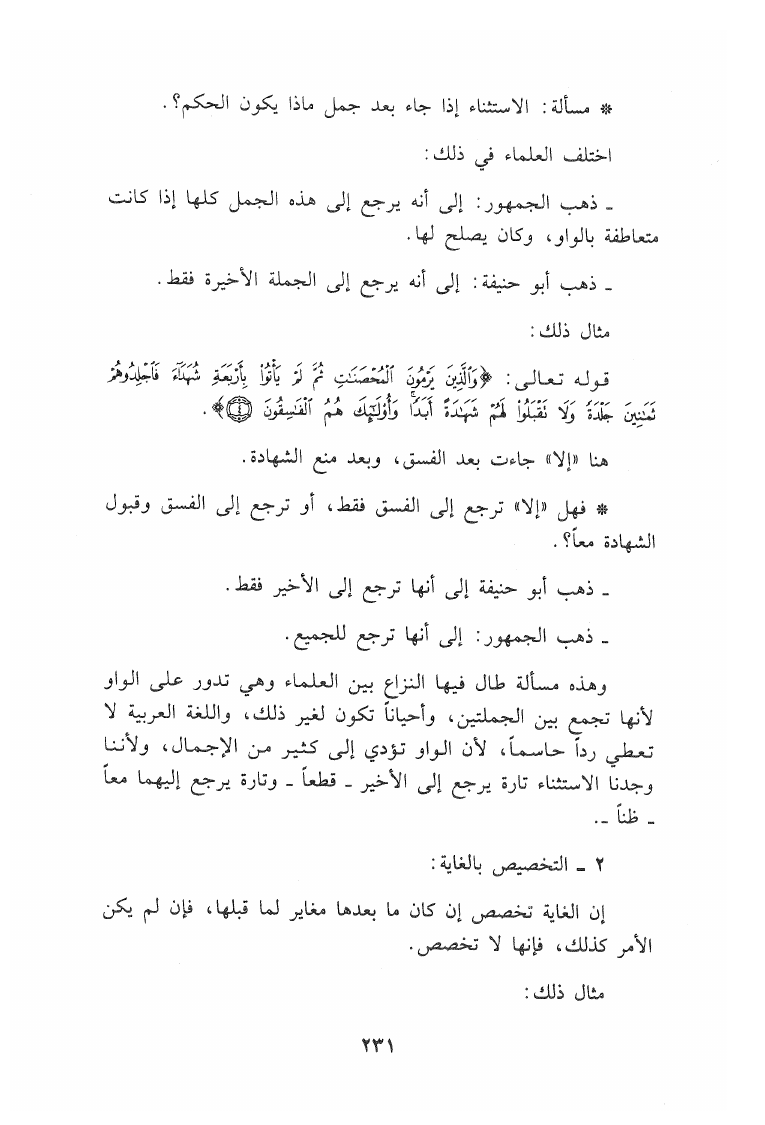 * مسألة: الاستثناء إذا جاء بعد جمل ماذا يكون الحكم؟.
اختلف العلماء في ذلك:
ـ ذهب الجمهور: إلى أنه يرجع إلى هذه الجمل كلها إذا كانت
متعاطفة بالواو، وكان يصلح لها.
ـ ذهب أبو حنيفة: إلى أنه يرجع إلى الجملة الأخيرة فقط.
مثال ذلك:
قوله تعالى: ﴿وَٱلَّذِينَ يَرْمُونَ ٱلْمُحْصَنَٰتِ ثُمَّ لَمْ يَأْتُوا۟ بِأَرْبَعَةِ شُهَدَآءَ فَٱجْلِدُوهُمْ
ثَمَٰنِينَ جَلْدَةً وَلَا تَقْبَلُوا۟ لَهُمْ شَهَٰدَةً أَبَدًا ۚ وَأُو۟لَٰٓئِكَ هُمُ ٱلْفَٰسِقُونَ ۝٤﴾.
هنا «إلا» جاءت بعد الفسق، وبعد منع الشهادة.
* فهل «إلا» ترجع إلى الفسق فقط، أو ترجع إلى الفسق وقبول
الشهادة معاً؟.
ـ ذهب أبو حنيفة إلى أنها ترجع إلى الأخير فقط.
ـ ذهب الجمهور: إلى أنها ترجع للجميع.
وهذه مسألة طال فيها النزاع بين العلماء وهي تدور على الواو
لأنها تجمع بين الجملتين، وأحياناً تكون لغير ذلك، واللغة العربية لا
تعطي رداً حاسماً، لأن الواو تؤدي إلى كثير من الإجمال، ولأننا
وجدنا الاستثناء تارة يرجع إلى الأخير ـ قطعاً ـ وتارة يرجع إليهما معاً
ـ ظناً ـ.
٢ ـ التخصيص بالغاية:
إن الغاية تخصص إن كان ما بعدها مغاير لما قبلها، فإن لم يكن
الأمر كذلك، فإنها لا تخصص.
مثال ذلك:
٢٣١